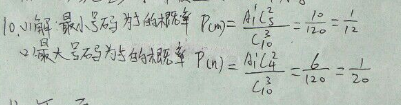 10.(1)解:最小号码为5的概率 P(m)=\frac{A_1^1C_5^2}{C_{10}^3}=\frac{10}{120}=\frac{1}{12}
(2)最大号码为5的概率 P(n)=\frac{A_1^1C_4^2}{C_{10}^3}=\frac{6}{120}=\frac{1}{20}